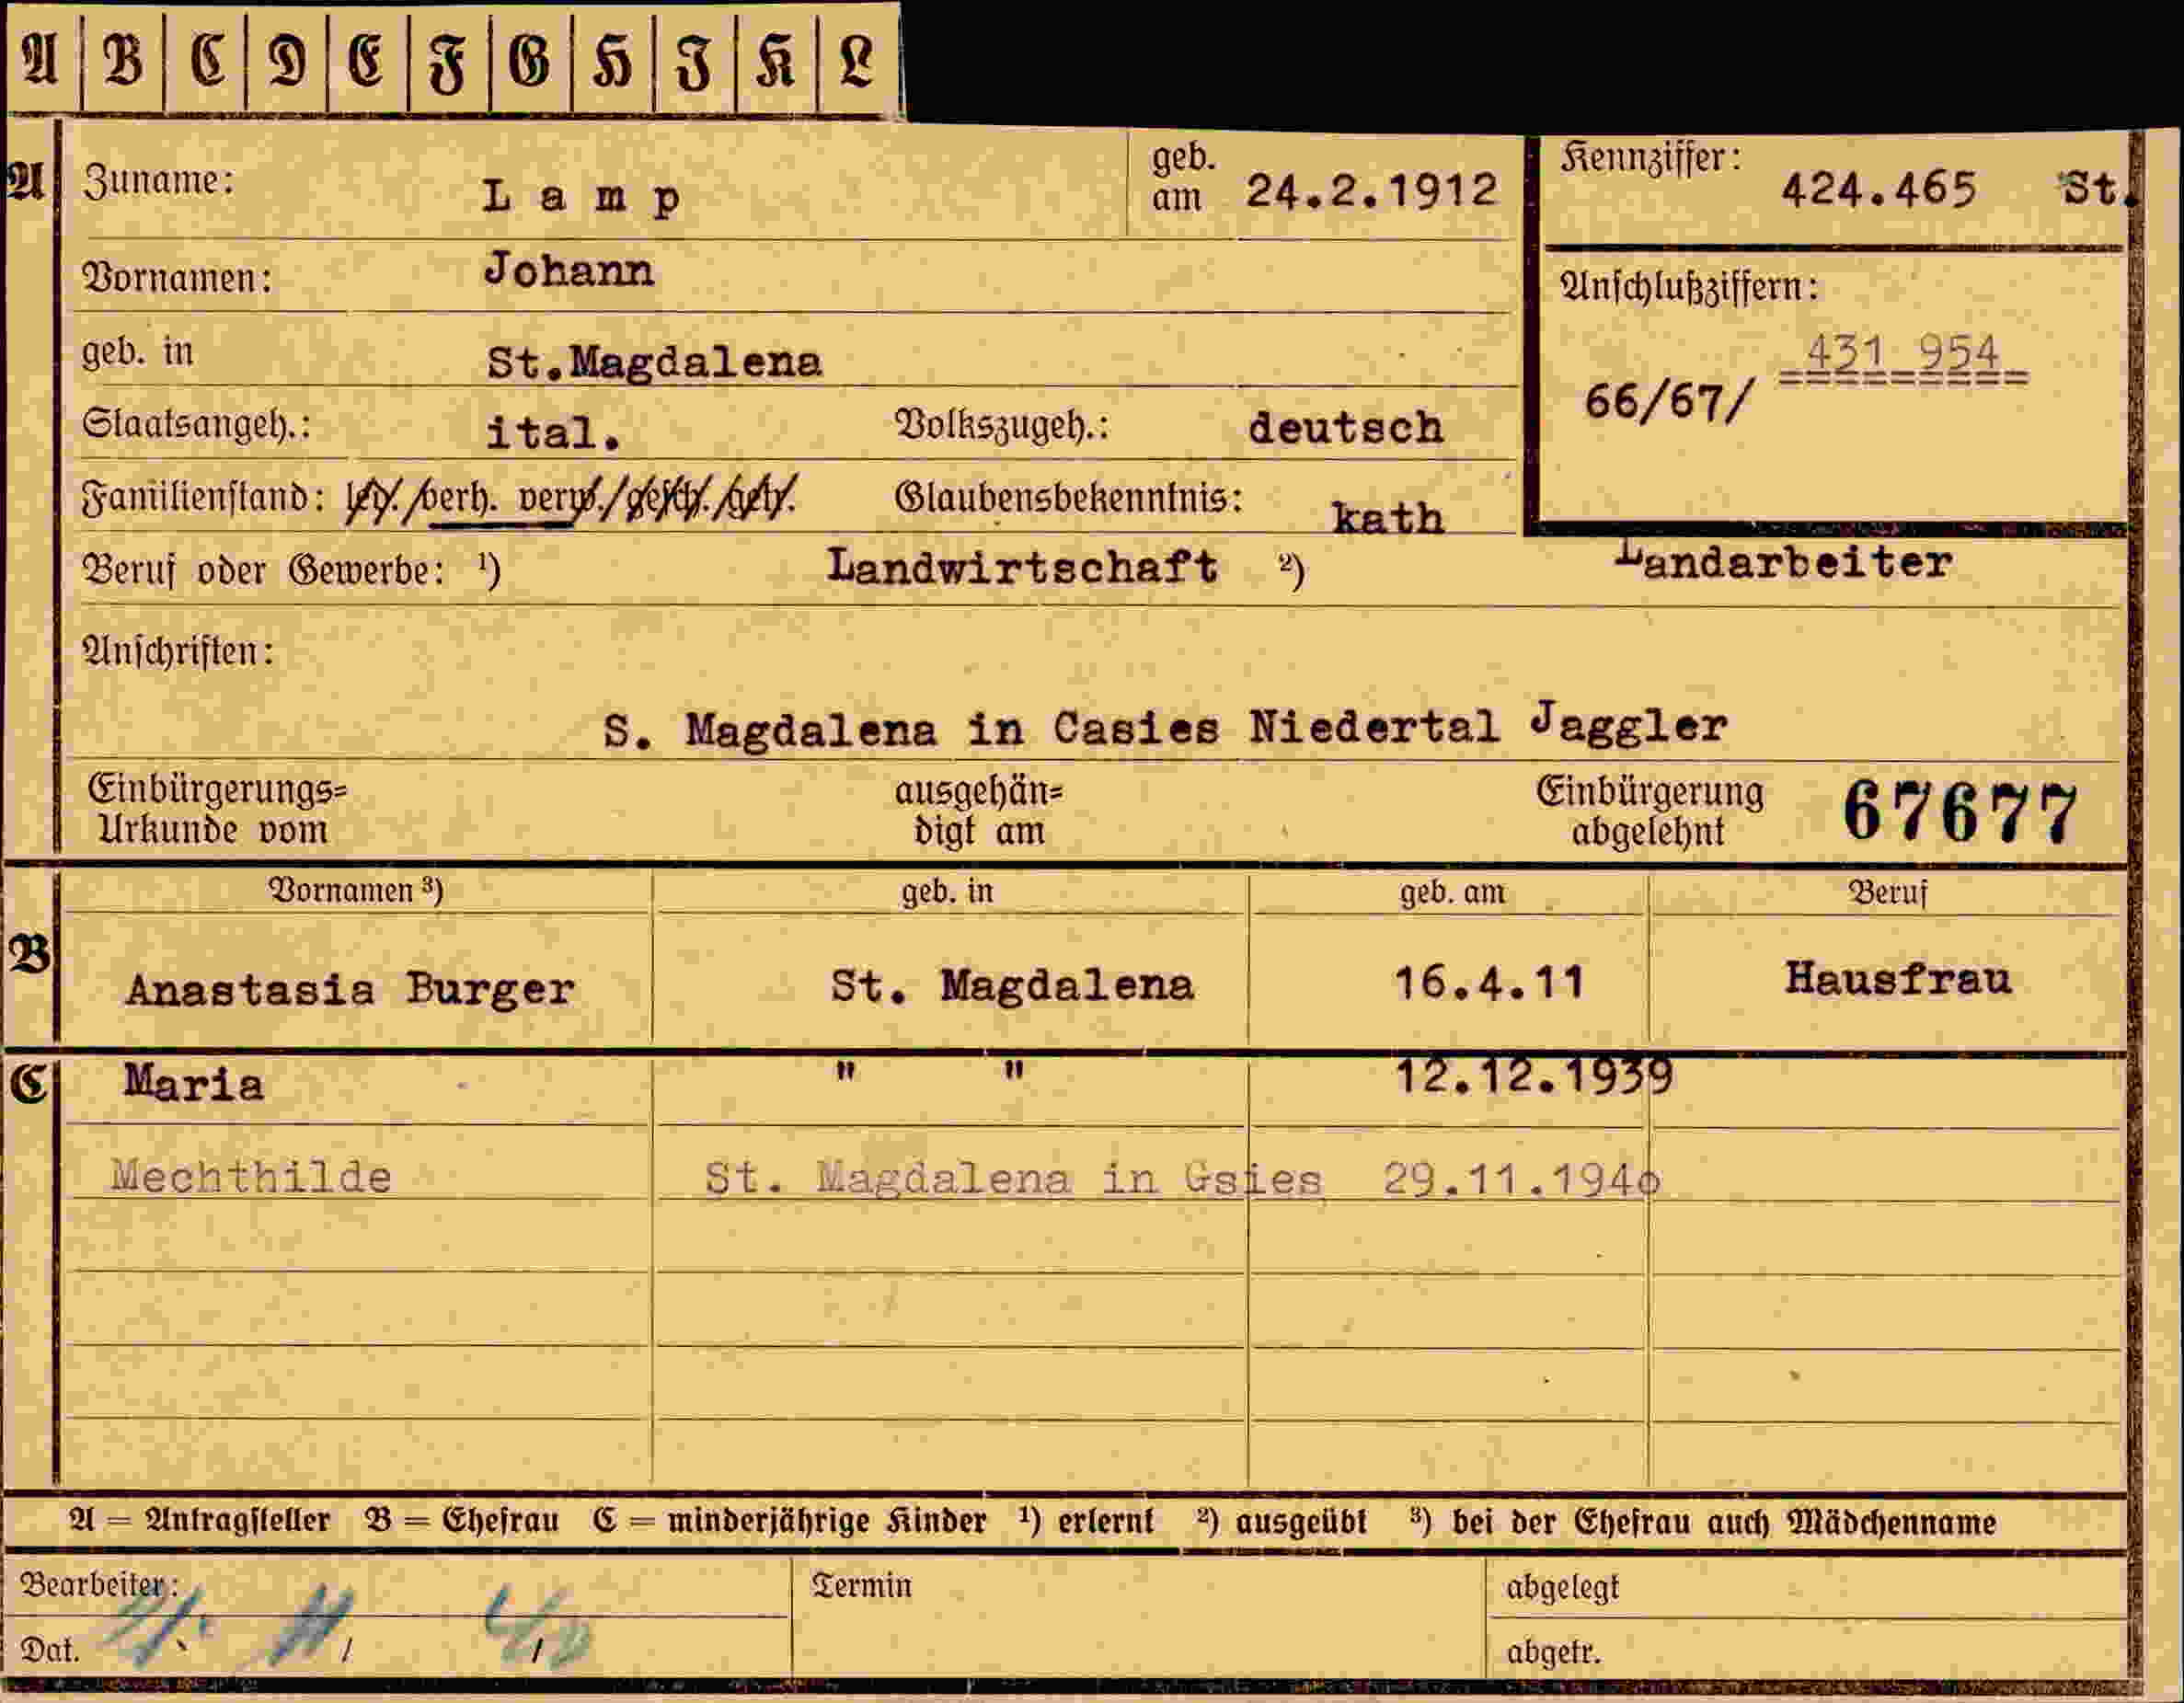 A B C D E F G H J K L
A Zuname: Lamp geb. am 24.2.1912 Kennziffer: 424.465 St.
Vornamen: Johann
Anschlußziffern:
geb. in St.Magdalena 431 954
66/67/
Staatsangeh.: ital. Volkszugeh.: deutsch
Familienstand: led./verh. verw./gesch./getr. Glaubensbekenntnis: kath
Beruf oder Gewerbe: ¹) Landwirtschaft ²) Landarbeiter
Anschriften:
S. Magdalena in Casies Niedertal Jaggler
Einbürgerungs= ausgehän= Einbürgerung 67677
Urkunde vom digt am abgelehnt
Vornamen ³) geb. in geb. am Beruf
B Anastasia Burger St. Magdalena 16.4.11 Hausfrau
C Maria " " 12.12.1939
Mechthilde St. Magdalena in Gsies 29.11.1940
A = Antragsteller B = Ehefrau C = minderjährige Kinder ¹) erlernt ²) ausgeübt ³) bei der Ehefrau auch Mädchenname
Bearbeiter: Termin abgelegt
Dat. abgetr.